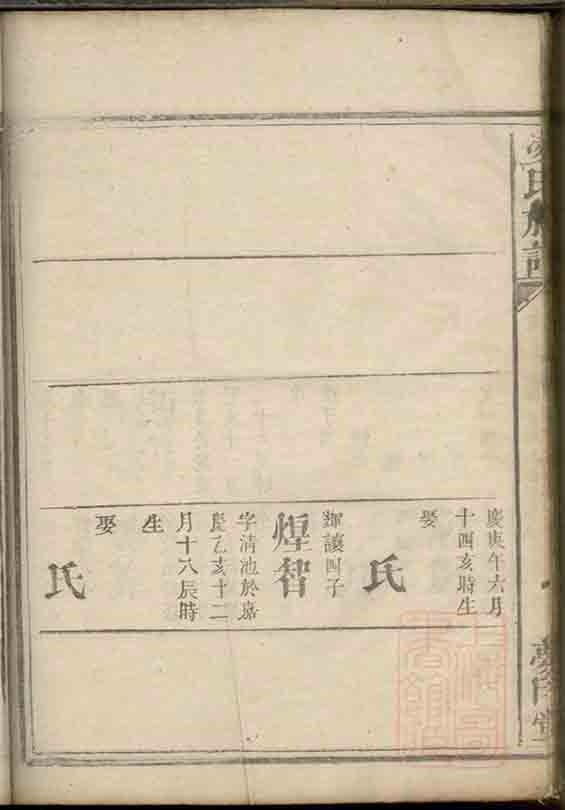 慶庚午六月
十四亥時生
娶
氏
輝讓四子
煌智
字清池於嘉
慶乙亥十二
月十八辰時
生
娶
氏
氏族譜
上海圖書館藏